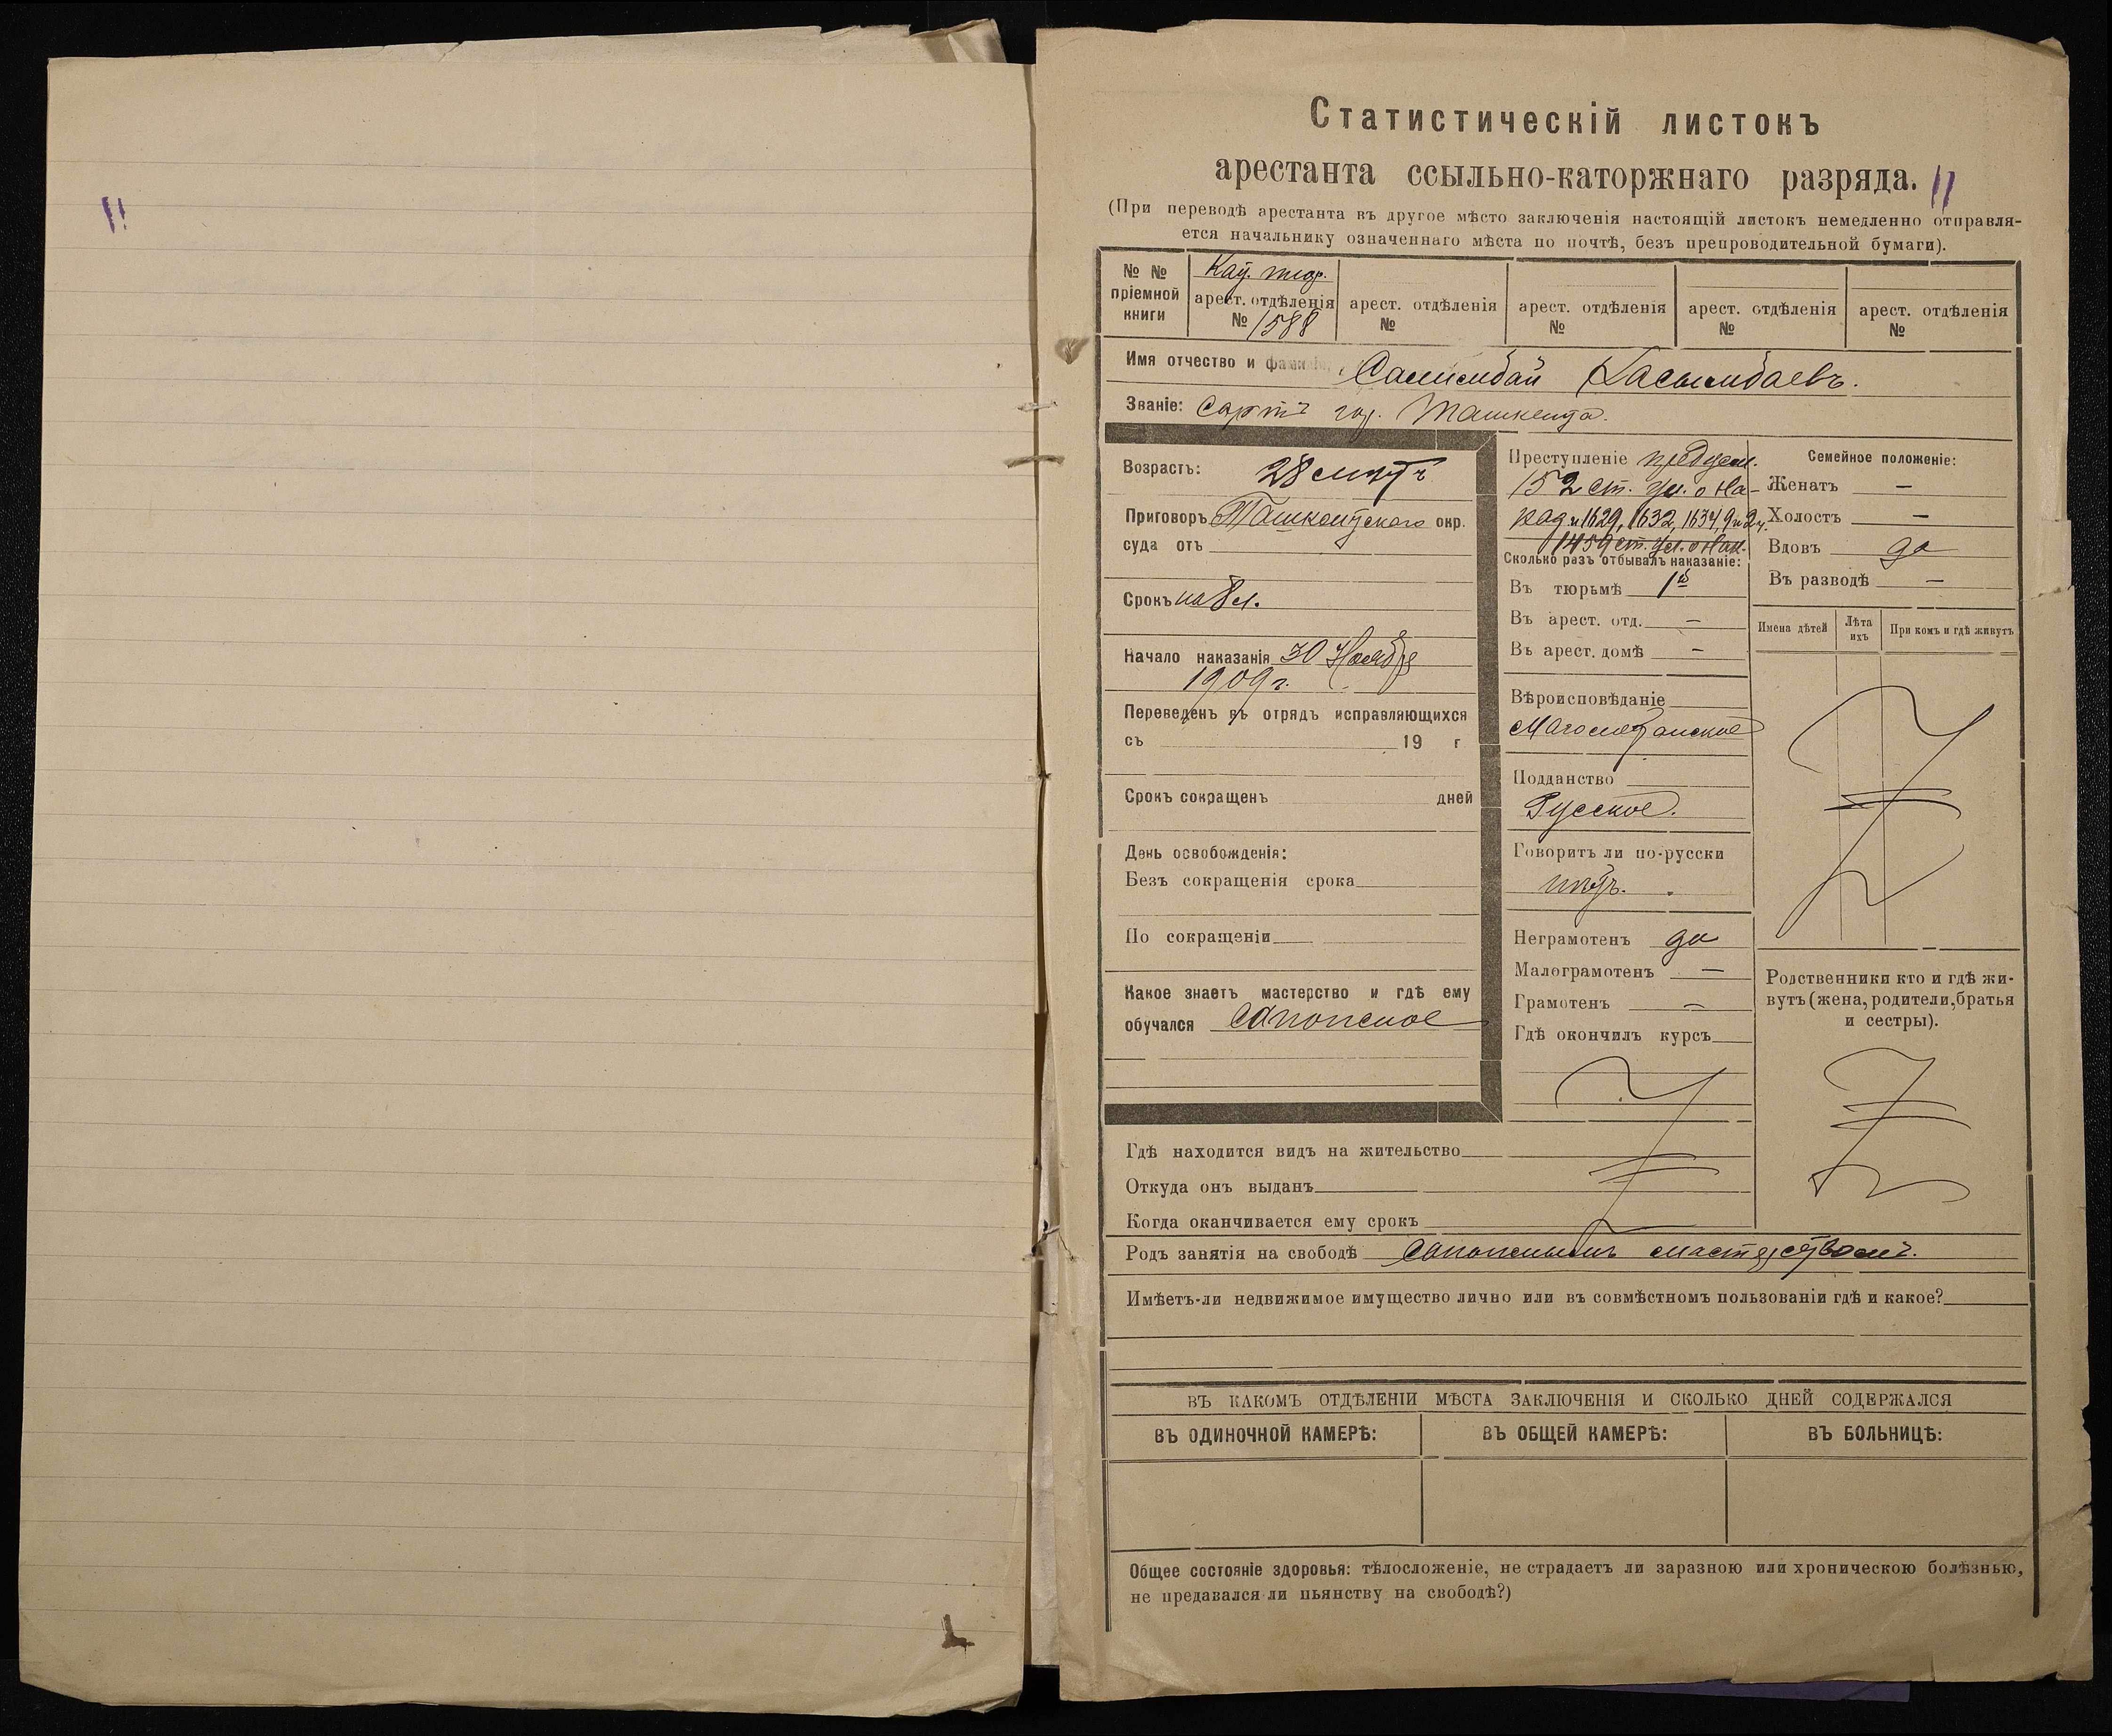 Статистическій листокъ
арестанта ссыльно-каторжнаго разряда. 11
(При переводѣ арестанта въ другое мѣсто заключенія настоящій листокъ немедленно отправля-
ется начальнику означеннаго мѣста по почтѣ, безъ препроводительной бумаги).
№ № пріемной книги
арест. отдѣленія № 1588
арест. отдѣленія №
арест. отдѣленія №
арест. отдѣленія №
арест. отдѣленія №
Имя отчество и фамилія, Салимбай Касымбаевъ.
Званіе: Сартъ гор. Ташкента.
Возрастъ: 28 лѣтъ
Приговоръ Ташкентскаго окр.
суда отъ
Срокъ на 8 л.
Начало наказанія 30 Ноября
1909 г.
Переведенъ въ отрядъ исправляющихся
съ 19 г
Срокъ сокращенъ дней
День освобожденія:
Безъ сокращенія срока
По сокращеніи
Какое знаетъ мастерство и гдѣ ему
обучался сапожное
Преступленіе предусм.
152 ст. Ул. о На-
каз. и 1629, 1632, 1634, 9 и 2 ч.
1459 ст. Ул. о Нак.
Сколько разъ отбывалъ наказаніе:
Въ тюрьмѣ 1й
Въ арест. отд. —
Въ арест. домѣ —
Вѣроисповѣданіе
Магометанское
Подданство
Русское.
Говоритъ ли по-русски
нѣтъ.
Неграмотенъ да
Малограмотенъ —
Грамотенъ —
Гдѣ окончилъ курсъ
Семейное положеніе:
Женатъ —
Холостъ —
Вдовъ да
Въ разводѣ —
Имена дѣтей
Лѣта ихъ
При комъ и гдѣ живутъ
Родственники кто и гдѣ жи-
вутъ (жена, родители, братья
и сестры).
Гдѣ находится видъ на жительство
Откуда онъ выданъ
Когда оканчивается ему срокъ
Родъ занятія на свободѣ сапожнымъ мастерствомъ.
Имѣетъ-ли недвижимое имущество лично или въ совмѣстномъ пользованіи гдѣ и какое?
ВЪ КАКОМЪ ОТДѢЛЕНІИ МѢСТА ЗАКЛЮЧЕНІЯ И СКОЛЬКО ДНЕЙ СОДЕРЖАЛСЯ
ВЪ ОДИНОЧНОЙ КАМЕРѢ:
ВЪ ОБЩЕЙ КАМЕРѢ:
ВЪ БОЛЬНИЦѢ:
Общее состояніе здоровья: тѣлосложеніе, не страдаетъ ли заразною или хроническою болѣзнью,
не предавался-ли пьянству на свободѣ?)